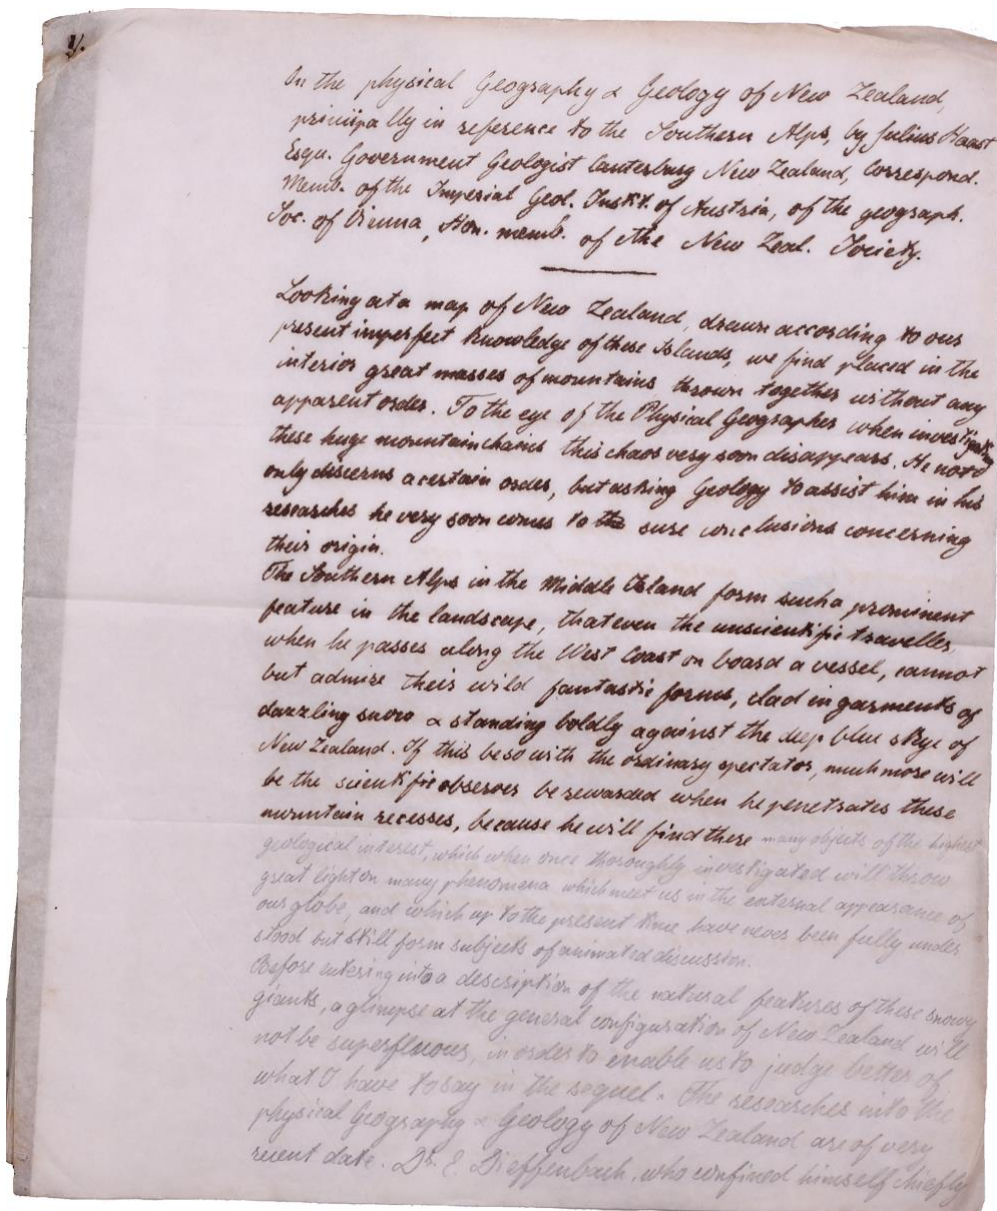 1/.
On the physical Geography & Geology of New Zealand,
principally in reference to the Southern Alps, by Julius Haast
Esqu. Government Geologist Canterbury New Zealand, Correspond.
Memb. of the Imperial Geol. Instit. of Austria, of the geograph.
Soc. of Vienna, Hon. memb. of the New Zeal. Society.
Looking at a map of New Zealand, drawn according to our
present imperfect knowledge of these Islands, we find placed in the
interior great masses of mountains thrown together without any
apparent order. To the eye of the Physical Geographer when investigating
these huge mountainchains this chaos very soon disappears. He not
only discerns a certain order, but asking Geology to assist him in his
researches he very soon comes to the sure conclusions concerning
their origin.
The Southern Alps in the Middle Island form such a prominent
feature in the landscape, that even the unscientific traveller,
when he passes along the West Coast on board a vessel, cannot
but admire their wild fantastic forms, clad in garments of
dazzling snow & standing boldly against the deep blue skye of
New Zealand. If this be so with the ordinary spectator, much more will
be the scientific observer be rewarded when he penetrates these
mountain recesses, because he will find there many objects of the highest
geological interest, which when once thoroughly investigated will throw
great light on many phenomena which meet us in the external appearance of
our globe, and which up to the present time have never been fully under
stood but still form subjects of animated discussion.
Before entering into a description of the natural features of these snowy
giants, a glimpse at the general configuration of New Zealand will
not be superfluous, in order to enable us to judge better of
what I have to say in the sequel. The researches into the
physical Geography & Geology of New Zealand are of very
recent date. Dr. E Dieffenbach, who confined himself chiefly